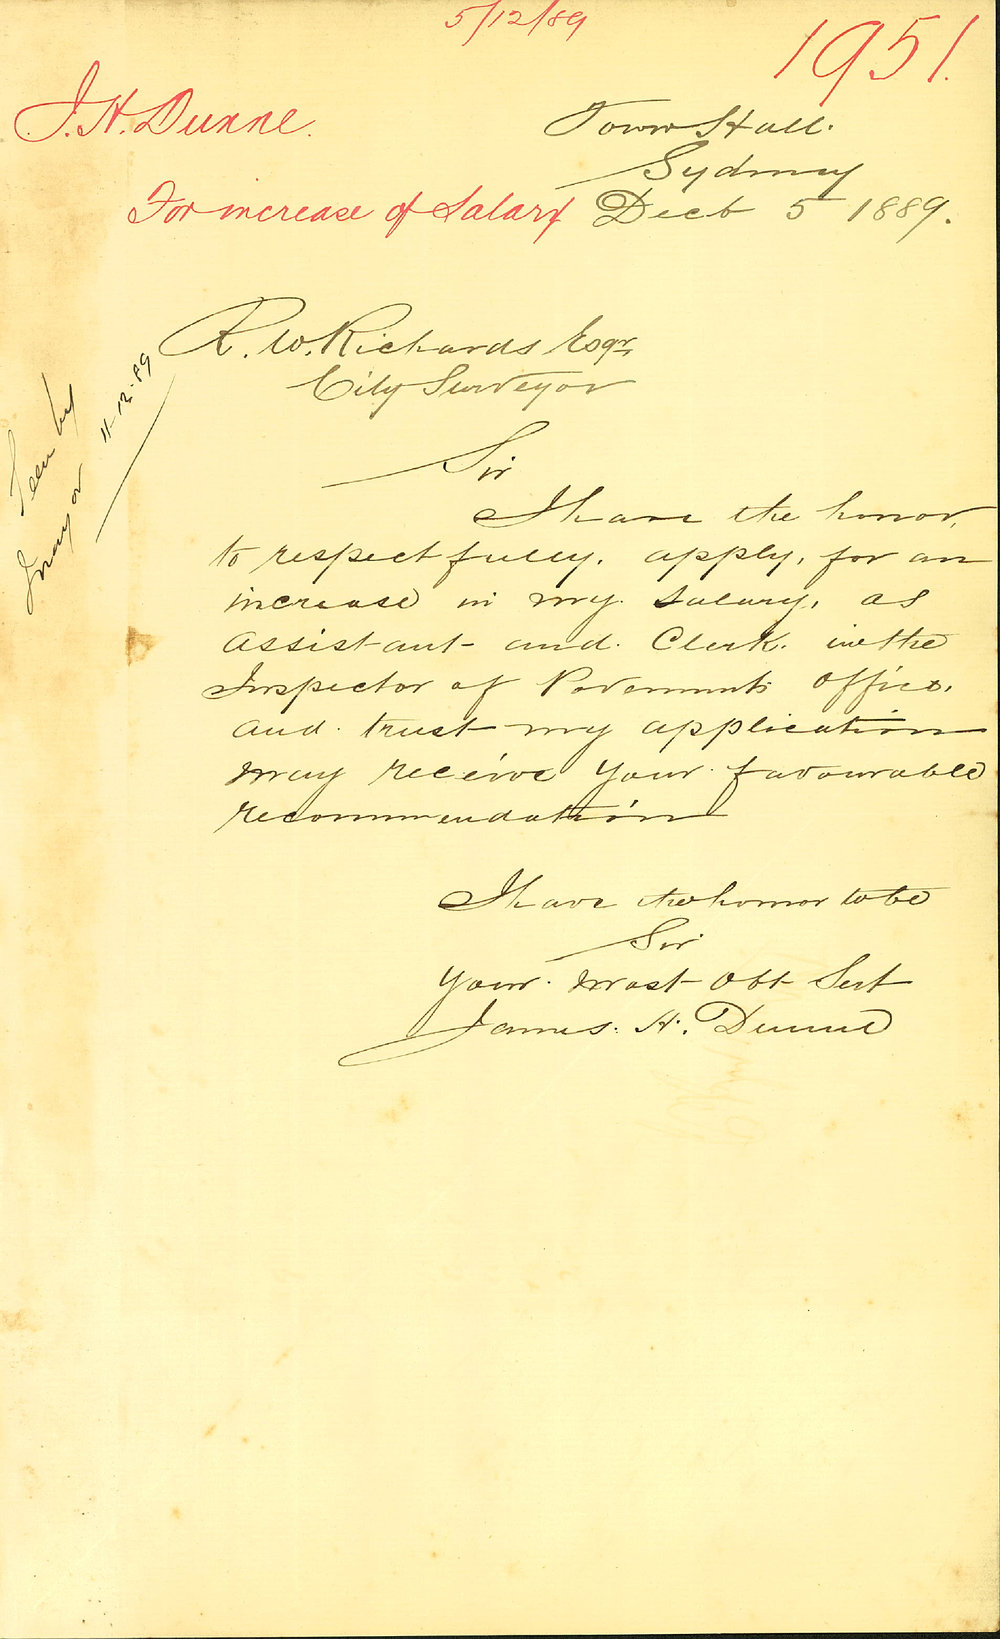 5/12/89
1951.
J. H. Dunne.
For increase of Salary
Town Hall.
Sydney
Decb 5 1889.
R. W. Richards Esqr,
City Surveyor
Seen by
Mayor
11-12-89
Sir
I have the honor,
to respectfully. apply, for an
increase in my salary, as
assistant and. Clerk. in the
Inspector of Pavements office.
and. trust my application
may receive your favourable
recommendation
I have the honor to be
Sir
Your. most Obt Sert
James. H. Dunne